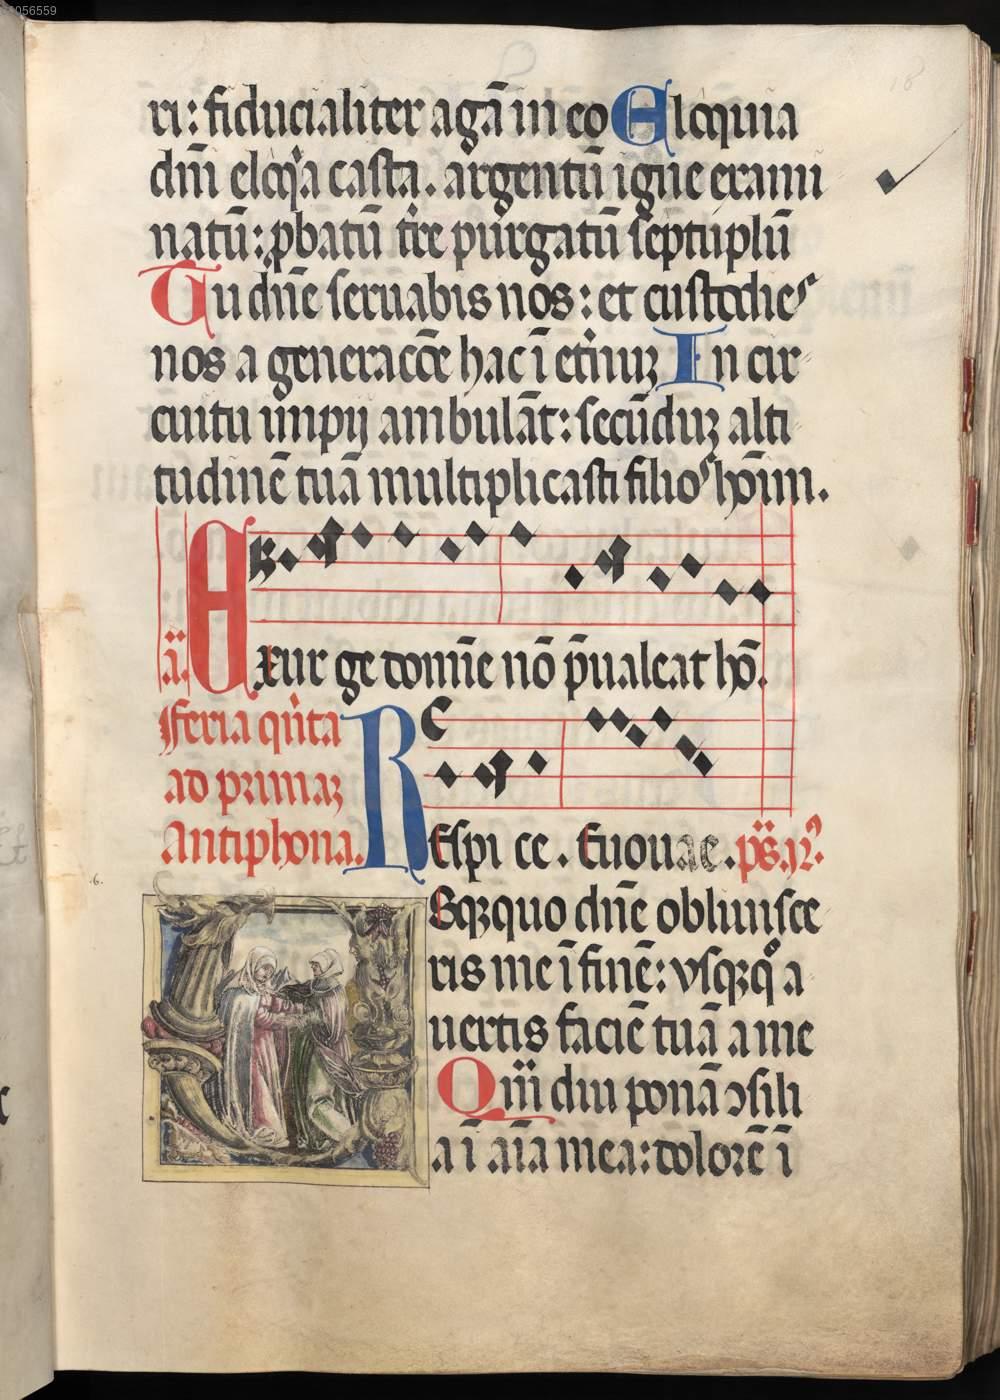 056559
18
ri: fiducialiter agā in eo Eloquia
dn̄i eloq̄a casta. argentū igne exami
natū: ꝓbatū tr̄e purgatū septuplū
Tu dn̄e seruabis nos: et custodies
nos a generacōe hac ī etn̄uꝫ In cir
cuitu impij ambulāt: secūduꝫ alti
tudinē tuā multiplicasti filios hoīm.
a̅.
Exur ge domīe nō p̄ualeat hō.
Feria qn̄ta
ad primaꝫ
Antiphona.
Respi ce. Euouae. ps̄.
Usqꝫquo dn̄e obliuisce
ris me ī finē: vsqꝫq̊ a
uertis faciē tuā a me
Qm̄ diu ponā ꝯsili
a ī aīa mea: dolorē ī
.6.